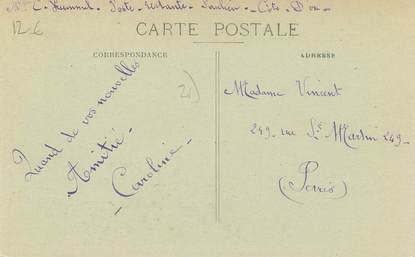 Mme C. Poste-restante - Saulieu - Côte-D'or -
12-6
CARTE POSTALE
CORRESPONDANCE
ADRESSE
Quand de vos nouvelles
Amitié -
- Caroline -
2)
Madame Vincent
249, rue St Martin 249 -
(Paris)